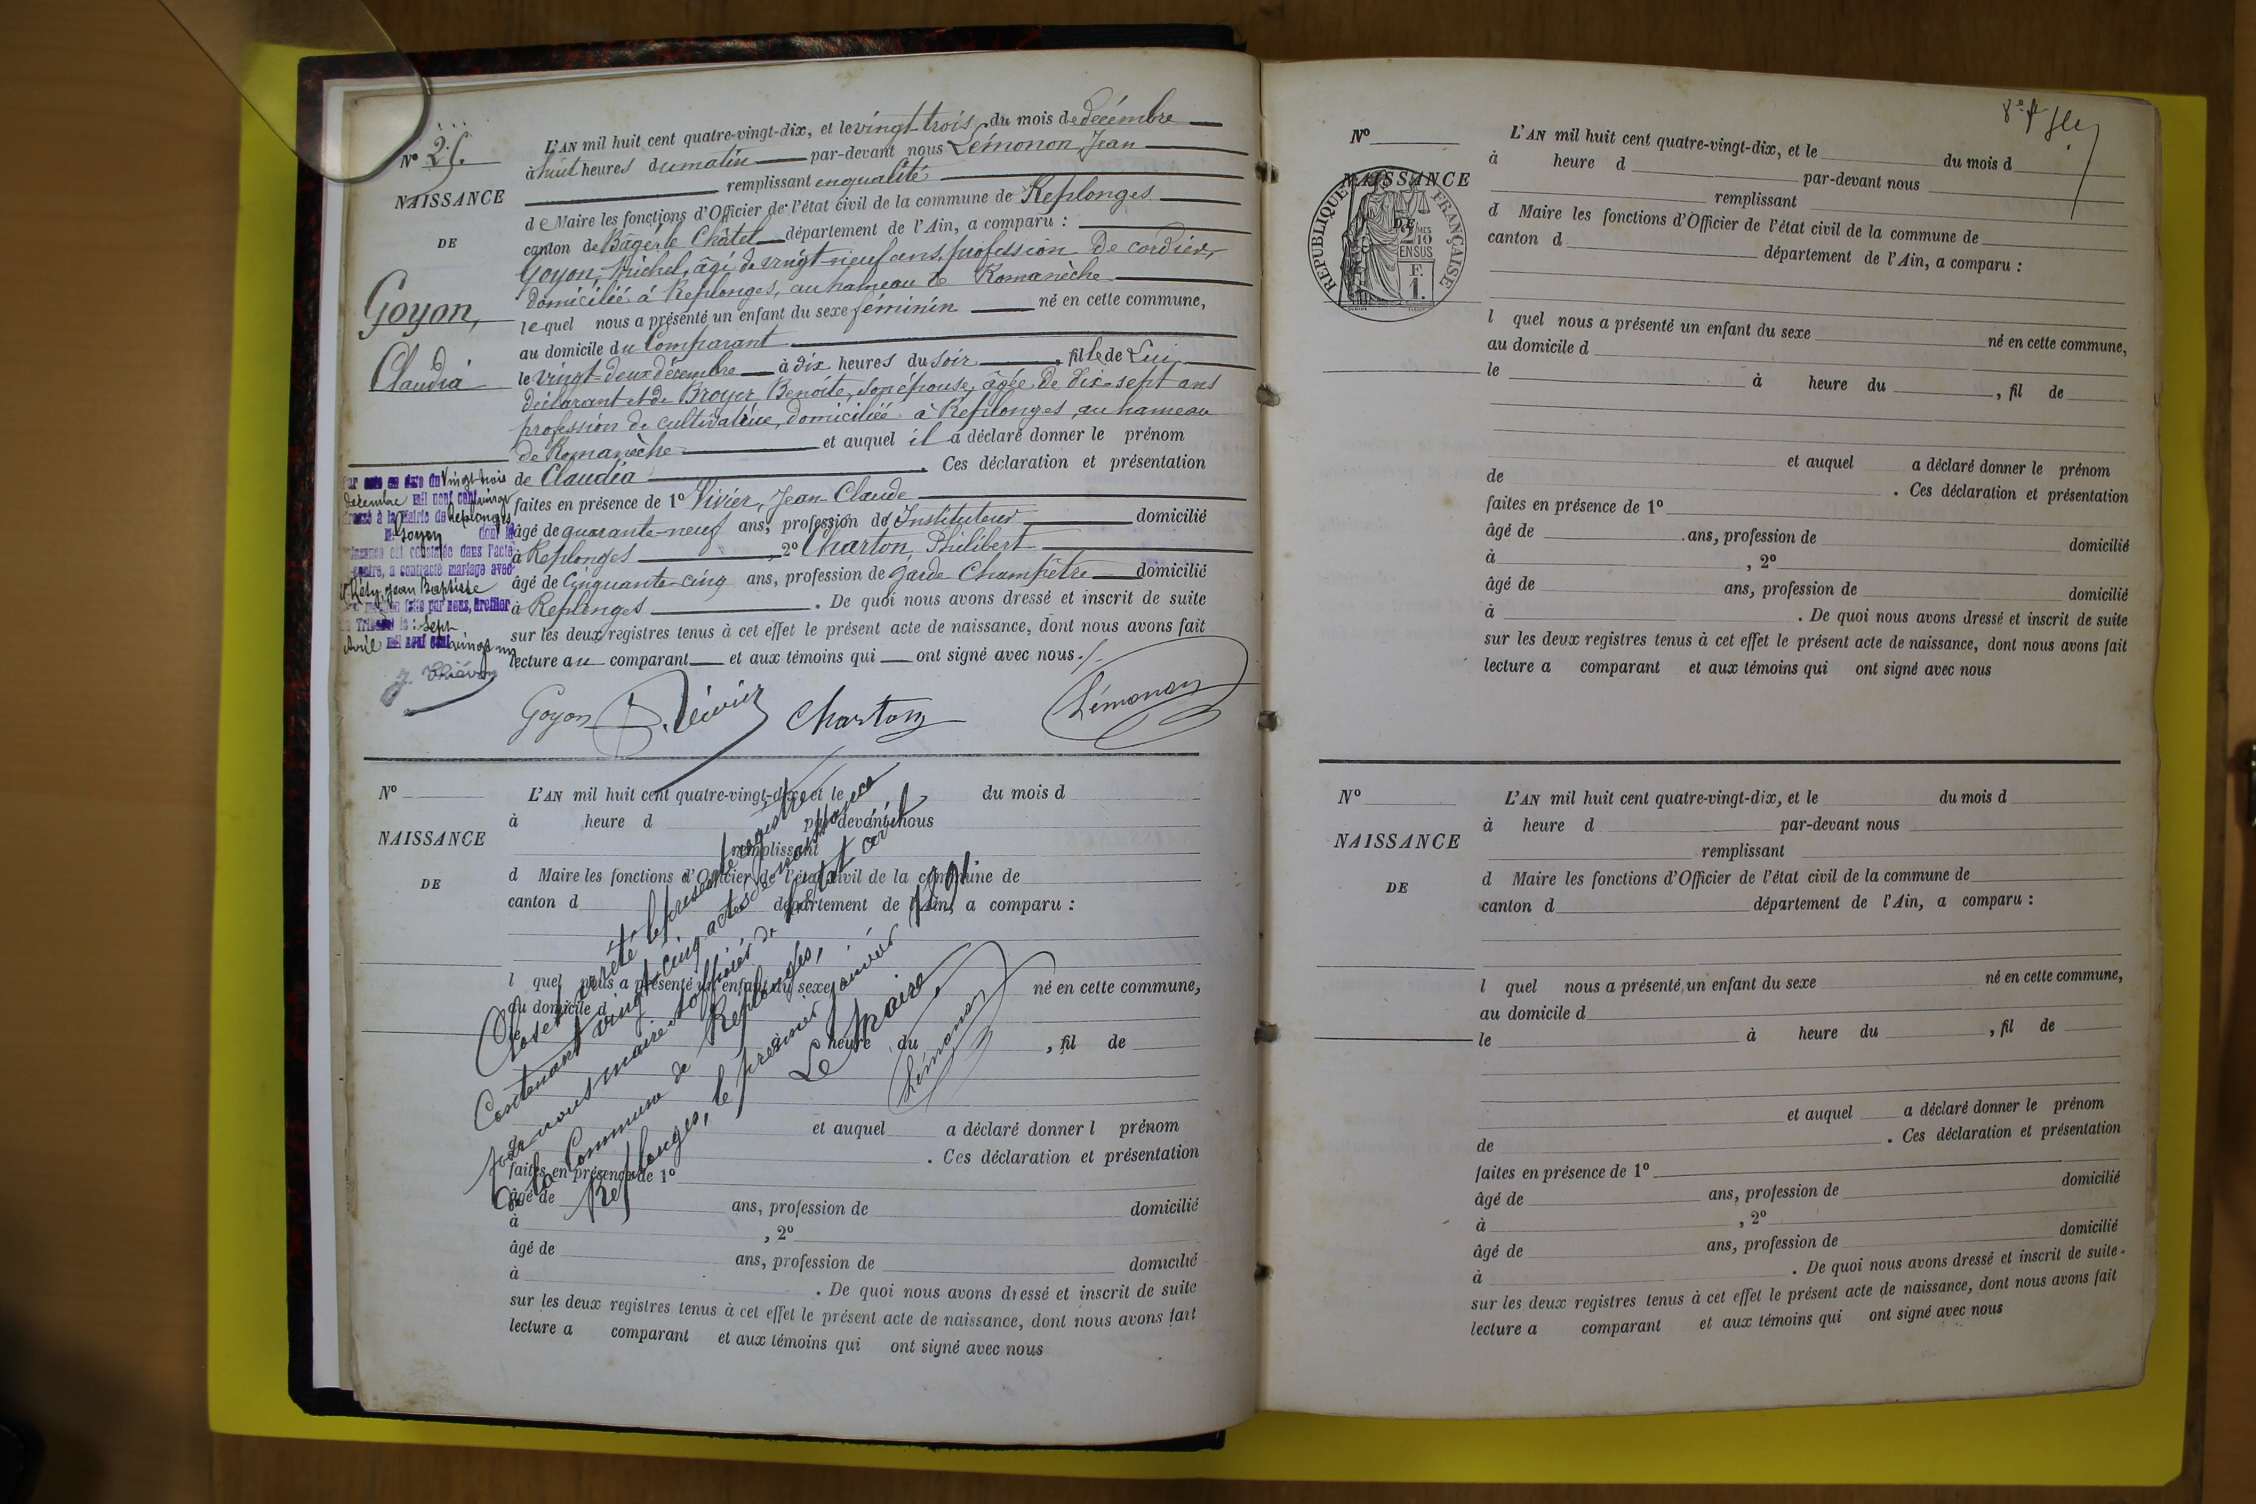 Nº 25.
NAISSANCE
DE
Goyon,
Claudia
L'AN mil huit cent quatre-vingt-dix, et le vingt-trois du mois de décembre
à huit heures du matin par-devant nous Lémonon, Jean
remplissant en qualité
de Maire les fonctions d'Officier de l'état civil de la commune de Replonges
canton de Bâgé-le-Châtel département de l'Ain, a comparu :
Goyon, Michel, âgé de vingt-neuf ans, profession de cordier,
domicilié à Replonges, au hameau de Romanèche
lequel nous a présenté un enfant du sexe féminin né en cette commune,
au domicile du Comparant
le vingt-deux décembre à dix heures du soir, fille de Lui
déclarant et de Broyer Benoite, son épouse, âgée de dix-sept ans
profession de cultivatrice, domiciliée à Replonges, au hameau
de Romanèche et auquel il a déclaré donner le prénom
de Claudia. Ces déclaration et présentation
faites en présence de 1º Vivier, Jean Claude
âgé de quarante-neuf ans, profession de Instituteur domicilié
à Replonges, 2º Charton, Philibert
âgé de cinquante-cinq ans, profession de garde Champêtre domicilié
à Replonges. De quoi nous avons dressé et inscrit de suite
sur les deux registres tenus à cet effet le présent acte de naissance, dont nous avons fait
lecture au comparant et aux témoins qui ont signé avec nous./.
Par acte en date du Vingt-trois
décembre mil neuf cent vingt
dressé à la Mairie de Replonges
Goyon dont la
naissance est constatée dans l'acte
contre, a contracté mariage avec
Réty, Jean Baptiste
faite par nous, Greffier
du Tribunal le : sept
Avril mil neuf cent vingt un
Goyon J. Vivier Charton Lémonon
Nº
NAISSANCE
DE
L'AN mil huit cent quatre-vingt-dix, et le du mois d
à heure d par-devant nous
remplissant
d Maire les fonctions d'Officier de l'état civil de la commune de
canton d département de l'Ain, a comparu :
l quel nous a présenté un enfant du sexe né en cette commune,
au domicile d
à heure du , fil de
et auquel a déclaré donner l prénom
de . Ces déclaration et présentation
faites en présence de 1º
âgé de ans, profession de domicilié
à , 2º
âgé de ans, profession de domicilié
à . De quoi nous avons dressé et inscrit de suite
sur les deux registres tenus à cet effet le présent acte de naissance, dont nous avons fait
lecture a comparant et aux témoins qui ont signé avec nous
Clos et arrêté le présent registre
Contenant vingt-cinq actes de naissance
par nous maire et officier de l'état civil
de la Commune de Replonges,
Replonges, le premier janvier 1891
Le Maire,
Lémonon
Nº
NAISSANCE
DE
RÉPUBLIQUE FRANÇAISE
2 10
EN SUS
F.
1.
L'AN mil huit cent quatre-vingt-dix, et le du mois d
à heure d par-devant nous
remplissant
d Maire les fonctions d'Officier de l'état civil de la commune de
canton d département de l'Ain, a comparu :
l quel nous a présenté un enfant du sexe né en cette commune,
au domicile d
le à heure du , fil de
et auquel a déclaré donner le prénom
de . Ces déclaration et présentation
faites en présence de 1º
âgé de ans, profession de domicilié
à , 2º
âgé de ans, profession de domicilié
à . De quoi nous avons dressé et inscrit de suite
sur les deux registres tenus à cet effet le présent acte de naissance, dont nous avons fait
lecture a comparant et aux témoins qui ont signé avec nous
Nº
NAISSANCE
DE
L'AN mil huit cent quatre-vingt-dix, et le du mois d
à heure d par-devant nous
remplissant
d Maire les fonctions d'Officier de l'état civil de la commune de
canton d département de l'Ain, a comparu :
l quel nous a présenté un enfant du sexe né en cette commune,
au domicile d
le à heure du , fil de
et auquel a déclaré donner le prénom
de . Ces déclaration et présentation
faites en présence de 1º
âgé de ans, profession de domicilié
à , 2º
âgé de ans, profession de domicilié
à . De quoi nous avons dressé et inscrit de suite
sur les deux registres tenus à cet effet le présent acte de naissance, dont nous avons fait
lecture a comparant et aux témoins qui ont signé avec nous